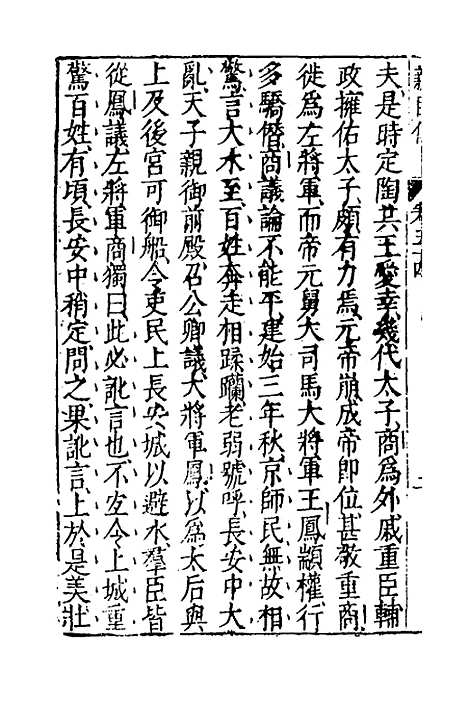 夫是時定陶共王愛幸幾代太子商為外戚重臣輔
政擁佑太子頗有力焉元帝崩成帝即位甚敬重商
徙為左將軍而帝元舅大司馬大將軍王鳳顓權行
多驕僭商議論不能平建始三年秋京師民無故相
驚言大水至百姓奔走相蹂躪老弱號呼長安中大
亂天子親御前殿召公卿議大將軍鳳以為太后與
上及後宮可御船令吏民上長安城以避水羣臣皆
從鳳議左將軍商獨曰此必訛言也不宜令上城重
驚百姓有頃長安中稍定問之果訛言上於是美壯